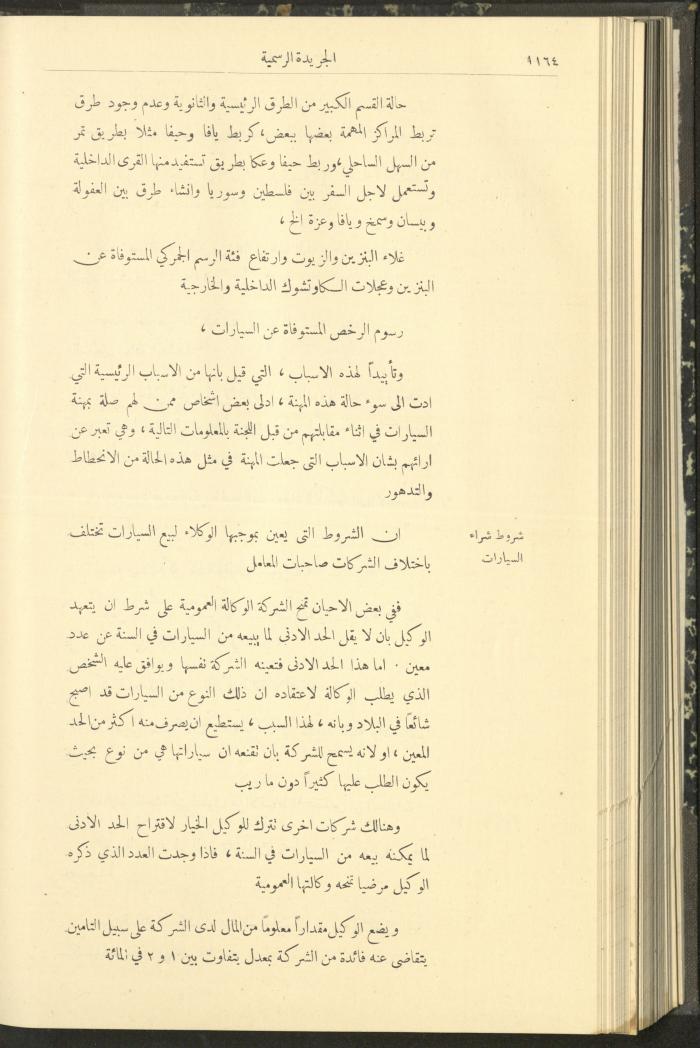 ١١٦٤
الجريدة الرسمية
حالة القسم الكبير من الطرق الرئيسية والثانوية وعدم وجود طرق
تربط المراكز المهمة بعضها ببعض، كربط يافا وحيفا مثلاً بطريق تمر
من السهل الساحلي، وربط حيفا وعكا بطريق تستفيد منها القرى الداخلية
وتستعمل لاجل السفر بين فلسطين وسوريا وانشاء طرق بين العفولة
وبيسان وسمخ ويافا وغزة الخ ،
غلاء البنزين والزيوت وارتفاع فئة الرسم الجمركي المستوفاة عن
البنزين وعجلات الكاوتشوك الداخلية والخارجية
رسوم الرخص المستوفاة عن السيارات ،
وتأييداً لهذه الاسباب ، التي قيل بانها من الاسباب الرئيسية التي
ادت الى سوء حالة هذه المهنة ، ادلى بعض اشخاص ممن لهم صلة بمهنة
السيارات في اثناء مقابلتهم من قبل اللجنة بالمعلومات التالية ، وهي تعبر عن
ارائهم بشان الاسباب التي جعلت المهنة في مثل هذه الحالة من الانحطاط
والتدهور
شروط شراء
السيارات
ان الشروط التي يعين بموجبها الوكلاء لبيع السيارات تختلف
باختلاف الشركات صاحبات المعامل
ففي بعض الاحيان تمنح الشركة الوكالة العمومية على شرط ان يتعهد
الوكيل بان لا يقل الحد الادنى لما يبيعه من السيارات في السنة عن عدد
معين . اما هذا الحد الادنى فتعينه الشركة نفسها ويوافق عليه الشخص
الذي يطلب الوكالة لاعتقاده ان ذلك النوع من السيارات قد اصبح
شائعاً في البلاد وبانه ، لهذا السبب ، يستطيع ان يصرف منه اكثر من الحد
المعين ، او لانه يسمح للشركة بان تقنعه ان سياراتها هي من نوع بحيث
يكون الطلب عليها كثيراً دون ما ريب
وهنالك شركات اخرى تترك للوكيل الخيار لاقتراح الحد الادنى
لما يمكنه بيعه من السيارات في السنة ، فاذا وجدت العدد الذي ذكره
الوكيل مرضيا تمنحه وكالتها العمومية
ويضع الوكيل مقداراً معلوماً من المال لدى الشركة على سبيل التامين
يتقاضى عنه فائدة من الشركة بمعدل يتفاوت بين ١ و ٢ في المائة